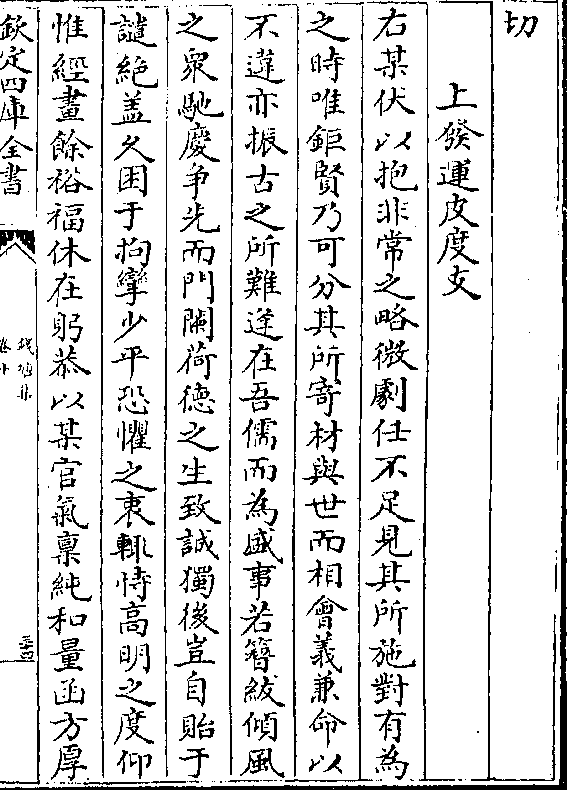 切
上發運皮度支
右某伏以抱非常之略微劇任不足見其所施對有為
之時唯鉅賢乃可分其所寄材與世而相會義兼命以
不違亦振古之所難逢在吾儒而為盛事若簪紱傾風
之眾馳慶争先而門闌荷德之生致誠獨後豈自貽于
譴絶盖久困于拘攣少平恐懼之衷輒恃高明之度仰
惟經畫餘裕福休在躬恭以某官氣禀純和量函方厚
欽定四庫全書